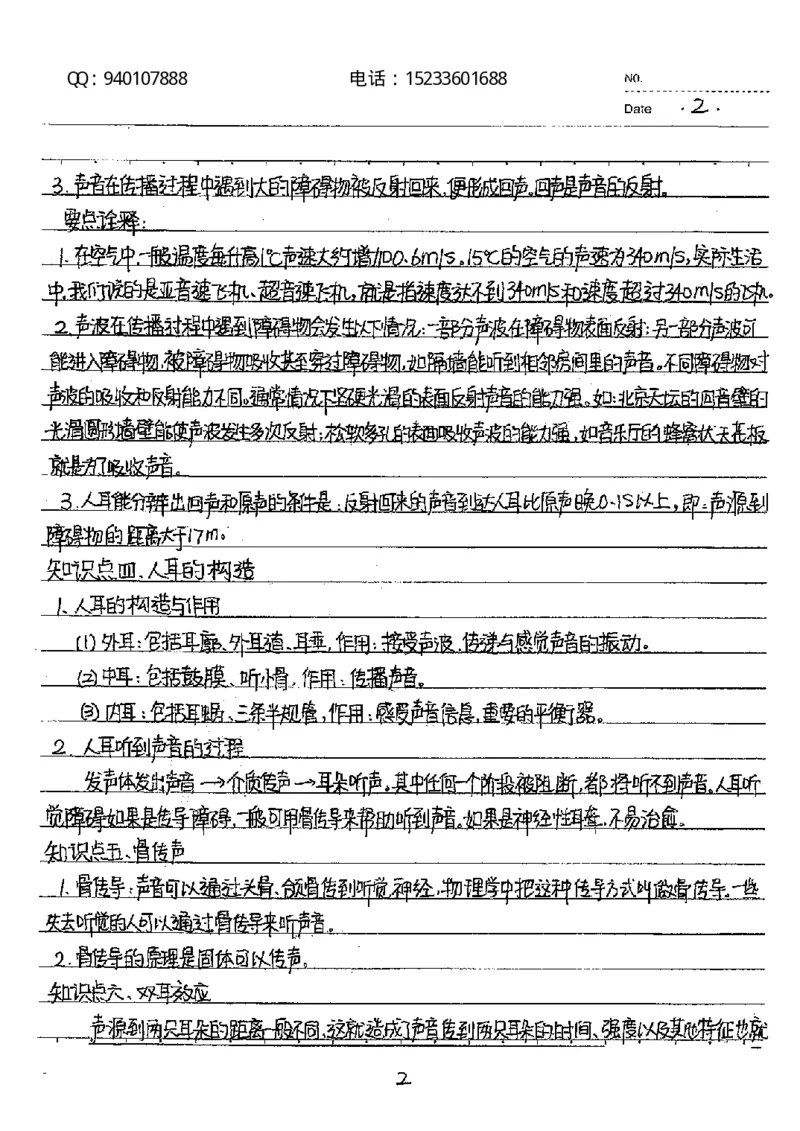 QQ：940107888 电话：15233601688 NO.
Date .2.
3.声音在传播过程中遇到大的障碍物被反射回来,便形成回声。回声是声音的反射。
要点诠释:
1.在空气中,一般温度每升高1℃声速大约增加0.6m/s。15℃的空气的声速为340m/s,实际生活
中,我们说的是亚音速飞机、超音速飞机,就是指速度达不到340m/s和速度超过340m/s的飞机。
2.声波在传播过程中遇到障碍物会发生以下情况:一部分声波在障碍物表面反射;另一部分声波可
能进入障碍物,被障碍物吸收甚至穿过障碍物,如隔墙能听到相邻房间里的声音。不同障碍物对
声波的吸收和反射能力不同。通常情况下坚硬光滑的表面反射声音的能力强。如:北京天坛的回音壁的
光滑圆形墙壁能使声波发生多次反射;松软多孔的表面吸收声波的能力强,如音乐厅的蜂窝状天花板
就是为了吸收声音。
3.人耳能分辨出回声和原声的条件是:反射回来的声音到达人耳比原声晚0.1S以上,即:声源到
障碍物的距离大于17m。
知识点四、人耳的构造
1、人耳的构造与作用
(1)外耳:包括耳廓、外耳道、耳垂,作用:接受声波,传递与感觉声音的振动。
(2)中耳:包括鼓膜、听小骨,作用:传播声音。
(3)内耳:包括耳蜗、三条半规管,作用:感受声音信息,重要的平衡器。
2.人耳听到声音的过程
发声体发出声音→介质传声→耳朵听声。其中任何一个阶段被阻断,都将听不到声音。人耳听
觉障碍如果是传导障碍,一般可用骨传导来帮助听到声音。如果是神经性耳聋,不易治愈。
知识点五、骨传声
1.骨传导:声音可以通过头骨、颌骨传到听觉神经,物理学中把这种传导方式叫做骨传导。一些
失去听觉的人可以通过骨传导来听声音。
2.骨传导的原理是固体可以传声。
知识点六、双耳效应
声源到两只耳朵的距离一般不同,这就造成了声音传到两只耳朵的时间、强度以及其他特征也就
2